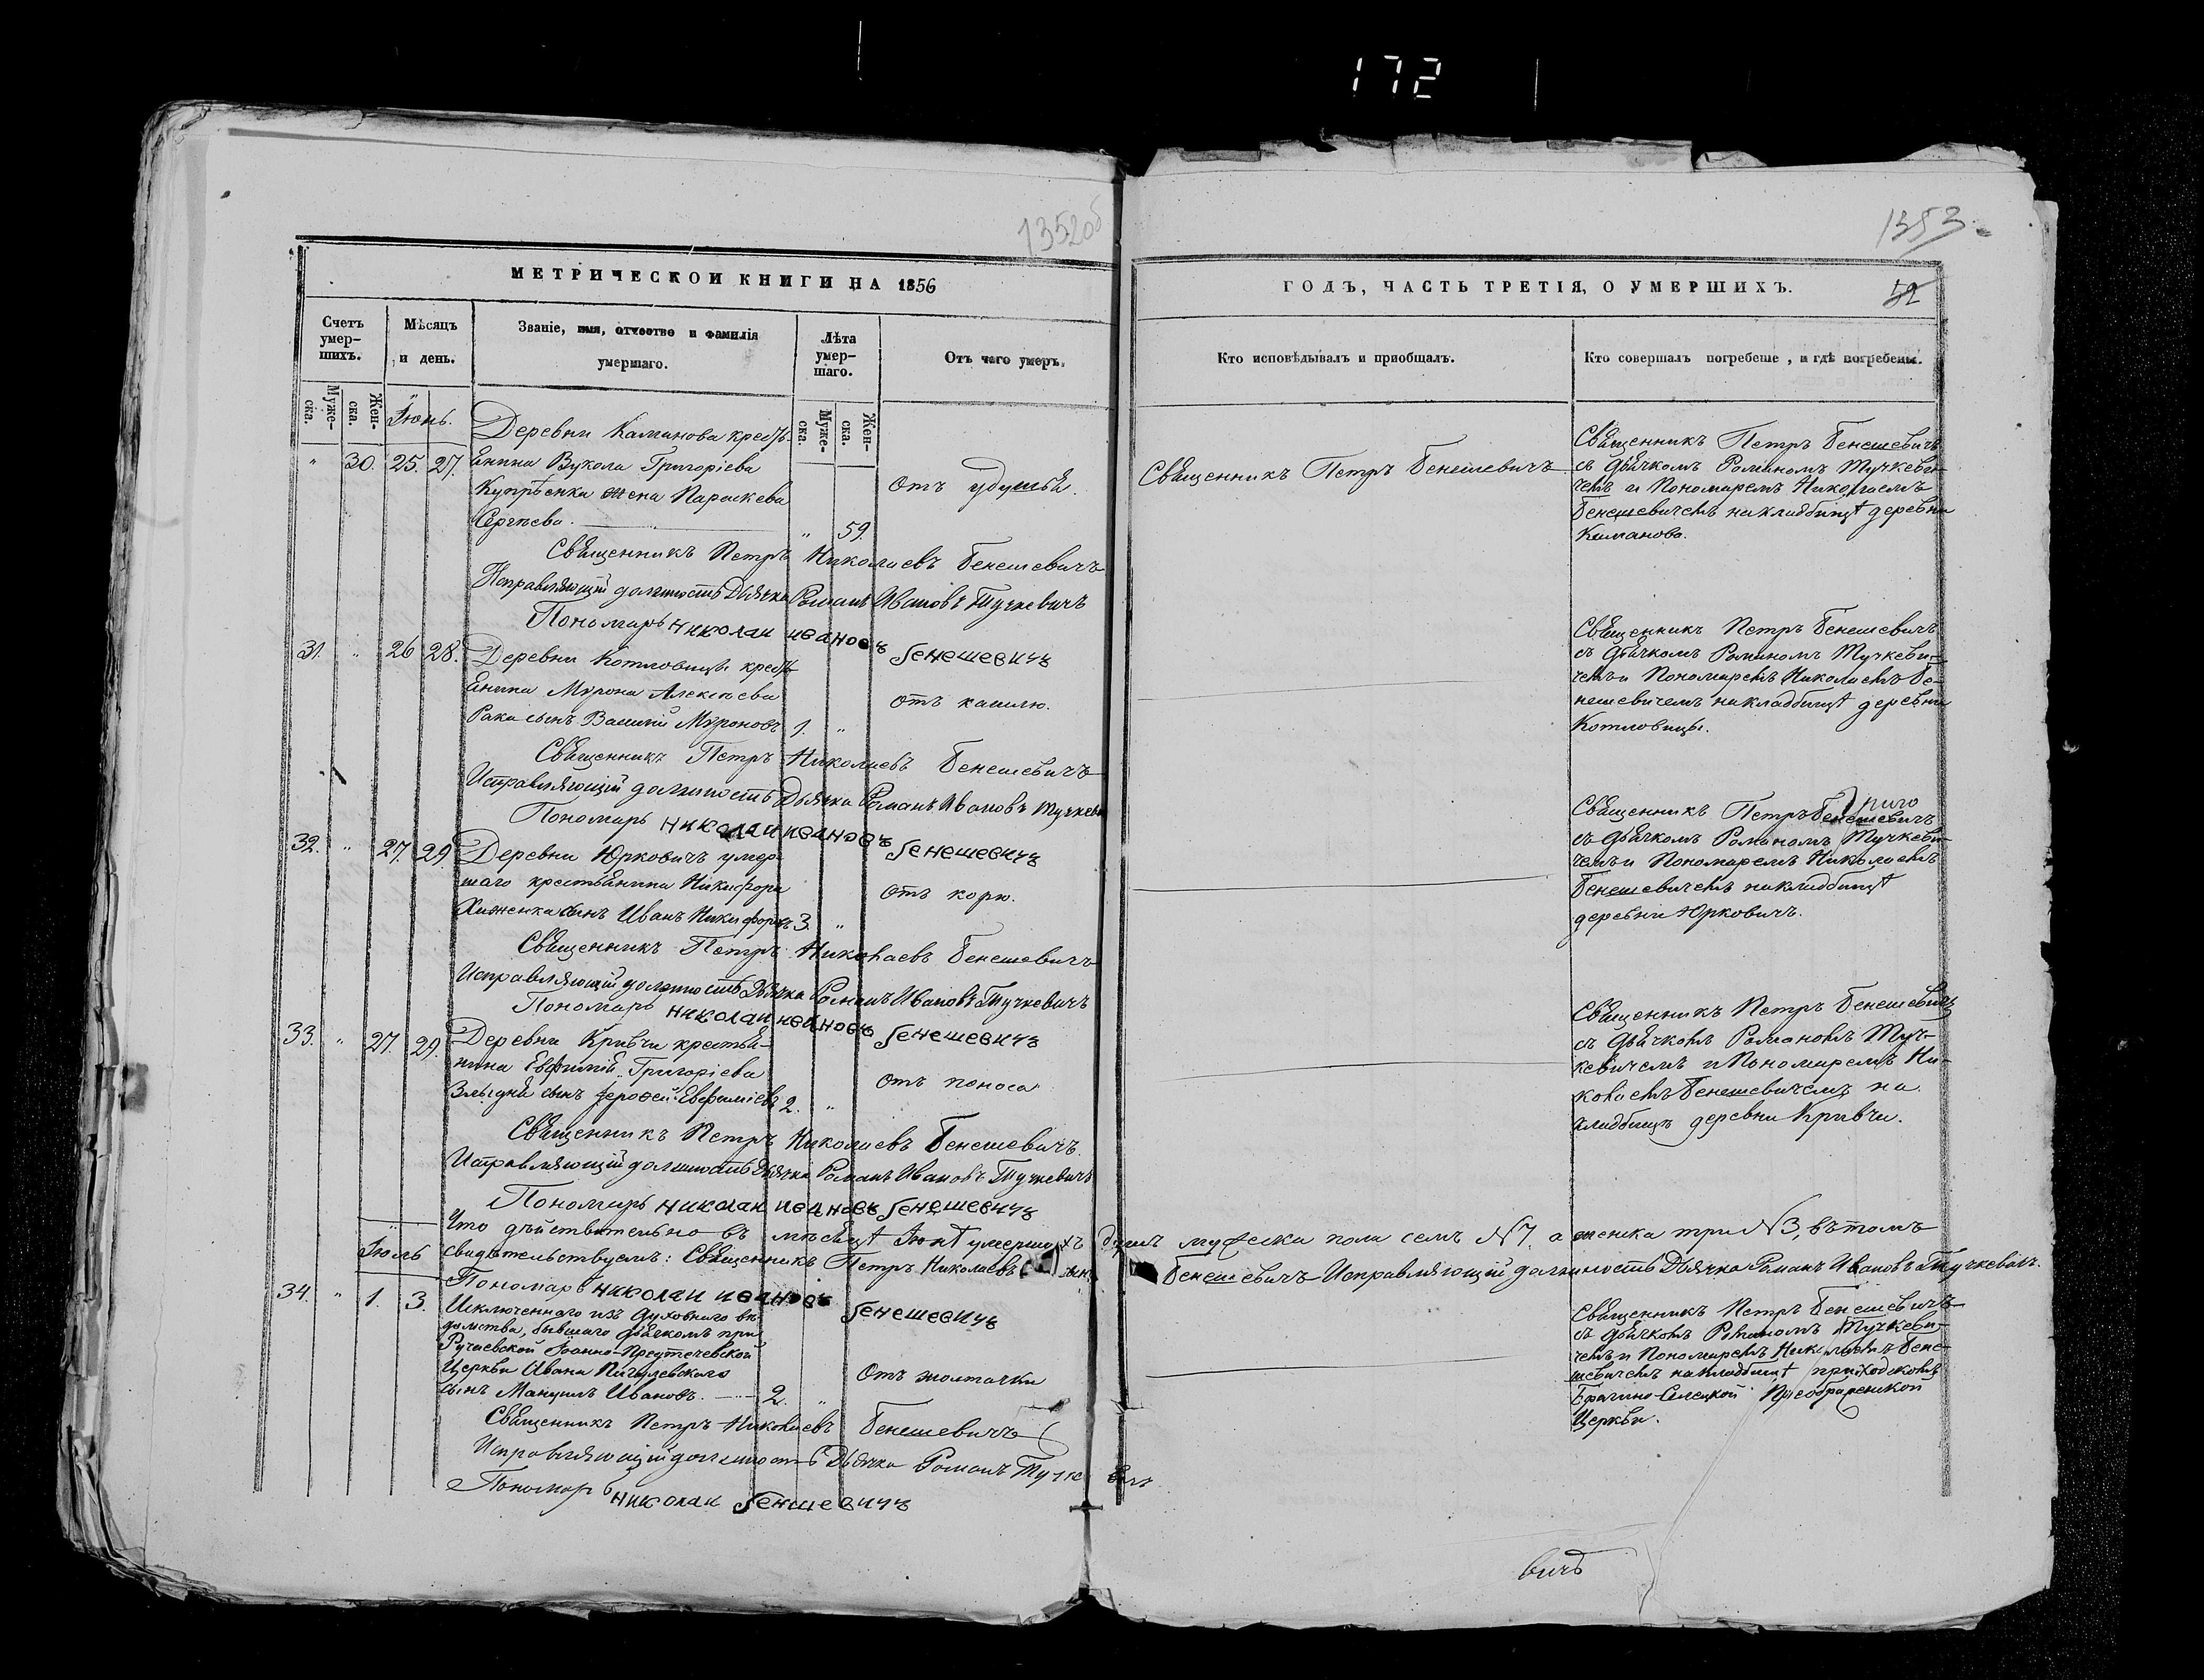 172
1352об
МЕТРИЧЕСКОЙ КНИГИ НА 1856
Счетъ умер-шихъ.
Мѣсяцъ и день.
Званіе, имя, отчество и фамилія умершаго.
Лѣта умер-шаго.
Отъ чего умеръ.
Муже-ска.
Жен-ска.
Муже-ска.
Жен-ска.
Іюнь.
Деревни Каминова кресть-
" 30. 25. 27. янина Вукола Григоріева
Купрѣенка жена Параскева
Сергѣева. " 59.
Отъ удушья.
Священникъ Петръ Николаевъ Бенешевичъ
Исправляющій должность Дьячка Романъ Ивановъ Тучкевичъ
Пономарь Николай Ивановъ Бенешевичъ
31. " 26 28. Деревни Котловицъ кресть-
янина Мѵрона Алексѣева
Рака сынъ Василій Мѵроновъ 1. "
отъ кашлю.
Священникъ Петръ Николаевъ Бенешевичъ
Исправляющій должность Дьячка Романъ Ивановъ Тучкеви
Пономарь Николай Ивановъ Бенешевичъ
32. " 27. 29. Деревни Юрковичъ умер-
шаго крестьянина Никифора
сынъ Иванъ Никифоровъ 3. "
отъ корю.
Священникъ Петръ Николаевъ Бенешевичъ
Исправляющій должность Дьячка Романъ Ивановъ Тучкевичъ
Пономарь Николай Ивановъ Бенешевичъ
33. " 27. 29. Деревни Кривчи крестья-
нина Евфимій Григоріева
Злыдня сынъ Іерофей Евфиміевъ 2. "
отъ поноса
Священникъ Петръ Николаевъ Бенешевичъ.
Исправляющій должность Дьячка Романъ Ивановъ Тучкевичъ
Пономарь Николай Ивановъ Бенешевичъ
Что дѣйствительно въ мѣсяцѣ Іюнѣ умершихъ было мужеска пола семъ №7, а женска три №3, въ томъ
Іюль
свидѣтельствуемъ: Священникъ Петръ Николаевъ Бенешевичъ Исправляющій должность Дьячка Романъ Ивановъ Тучкевичъ.
Пономарь Николай Ивановъ Бенешевичъ
34. " 1. 3. Исключеннаго изъ духовнаго вѣ-
домства, бывшаго дьячкомъ при
Ручаевской Іоанно-Предтечевской
Церкви Ивана Пигулевскаго
сынъ Мануилъ Ивановъ. 2. "
Отъ желтачки
Священникъ Петръ Николаевъ Бенешевичъ
Исправляющій должность Дьячка Романъ Тучкевичъ
Пономарь Николай Бенешевичъ
1353
ГОДЪ, ЧАСТЬ ТРЕТІЯ, О УМЕРШИХЪ.
52
Кто исповѣдывалъ и пріобщалъ.
Кто совершалъ погребеніе, и гдѣ погребены.
Священникъ Петръ Бенешевичъ
Священникъ Петръ Бенешевичъ
съ дьячкомъ Романомъ Тучкеви-
чемъ и Пономаремъ Николаемъ
Бенешевичемъ на кладбищѣ деревни
Каманова.
Священникъ Петръ Бенешевичъ
съ дьячкомъ Романомъ Тучкеви-
чемъ и Пономаремъ Николаемъ Бе-
нешевичемъ на кладбищѣ деревни
Котловицы.
Священникъ Петръ Бенешевичъ
съ дьячкомъ Романомъ Тучкеви-
чемъ и Пономаремъ Николаемъ
Бенешевичемъ на кладбищѣ
деревни Юрковичъ.
Священникъ Петръ Бенешевичъ
съ дьячкомъ Романомъ Туч-
кевичемъ и Пономаремъ Ни-
колаемъ Бенешевичемъ на
кладбищѣ деревни Кривчи.
Священникъ Петръ Бенешевичъ
съ дьячкомъ Романомъ Тучкеви-
чемъ и Пономаремъ Николаемъ Бене-
шевичемъ на кладбищѣ приходскомъ
Брагино-Селецкой Преображенской
Церкви.
вичъ